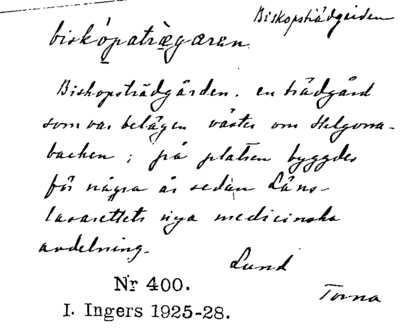 Biskopsträdgården
biskópatrægæren
Biskopsträdgården. en trädgård
som var belägen väster om Helgona-
backen; på platsen byggdes
för några år sedan Läns-
lasarettets nya medicinska
avdelning.
Lund
Torna
Nr 400.
I. Ingers 1925-28.